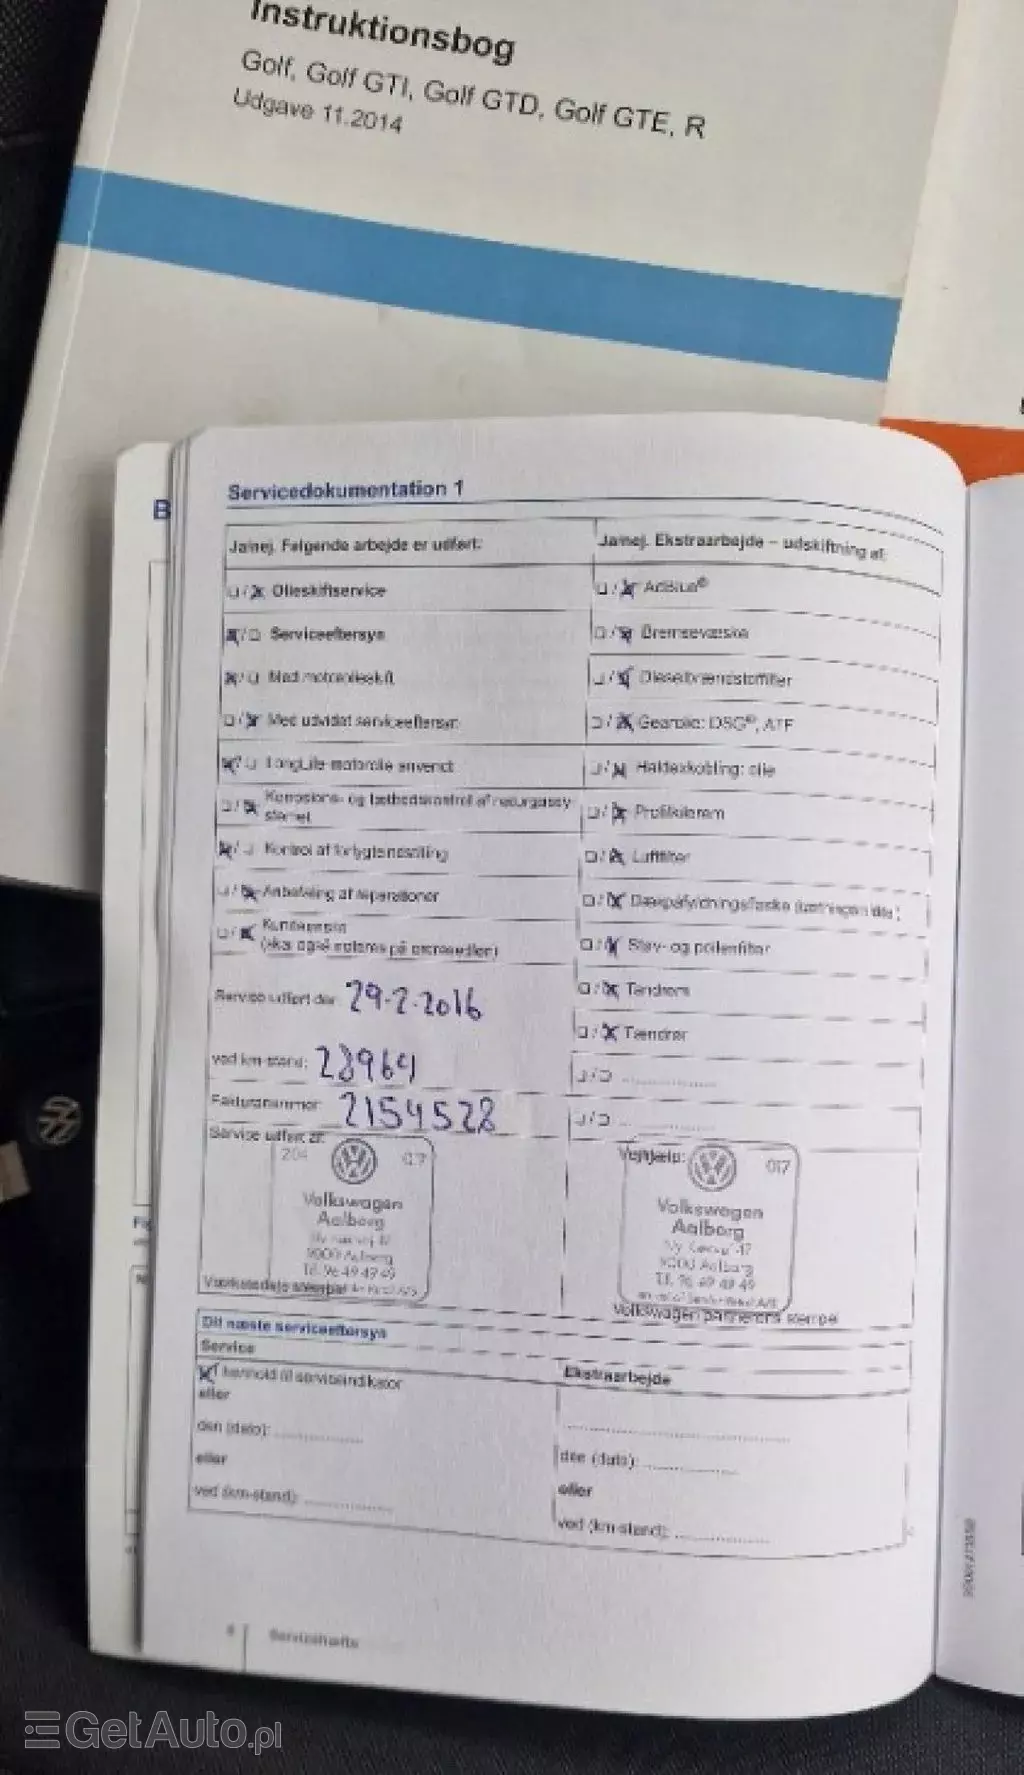 Instruktionsbog
Golf, Golf GTI, Golf GTD, Golf GTE, R
Udgave 11.2014
B
Servicedokumentation 1
Ja/nej. Følgende arbejde er udført:
Ja/nej. Ekstraarbejde – udskiftning af:
Olieskiftservice
AdBlue®
Serviceeftersyn
Bremsevæske
Med motorolieskift
Dieselbrændstoffilter
Med udvidet serviceeftersyn
Gearolie: DSG®, ATF
LongLife-motorolie anvendt
Haldexkobling: olie
Profilkilerem
Kontrol af forlygteindstilling
Luftfilter
Anbefaling af reparationer
Dækpåfyldningsflaske (tætningsmiddel)
Støv- og pollenfilter
Service udført den: 29-2-2016
Tandrem
Tændrør
ved km-stand: 28964
Fakturanummer: 2154528
Service udført af:
Vejhjælp:
204
017
Volkswagen
Aalborg
9000 Aalborg
Tlf. 96 49 49 49
017
Volkswagen
Aalborg
9000 Aalborg
Tlf. 96 49 49 49
Volkswagen partnerens stempel
Dit næste serviceeftersyn
Service
Ekstraarbejde
I henhold til serviceindikator
eller
den (dato):
den (dato):
eller
eller
ved (km-stand):
ved (km-stand):
Servicehæfte
GetAuto.pl